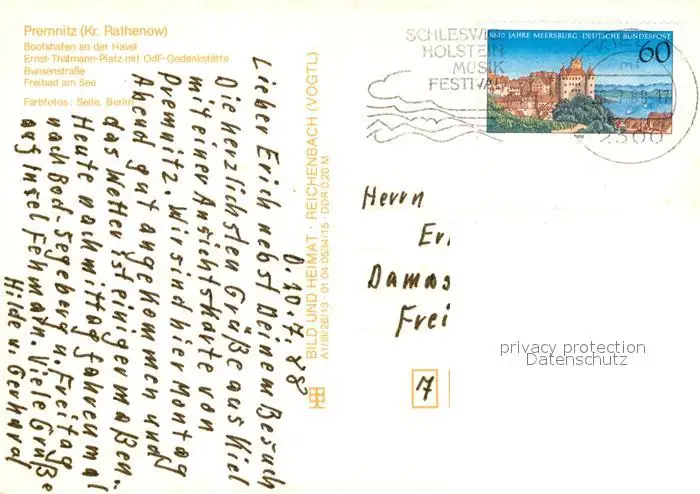 Premnitz (Kr. Rathenow)
Bootshafen an der Havel
Ernst-Thälmann-Platz mit OdF-Gedenkstätte
Bunsenstraße
Freibad am See
Farbfotos: Selle, Berlin
D. 20.7.88
Lieber Erich nebst Deinem Besuch
Die herzlichsten Grüße aus Kiel
mit einer Ansichtskarte von
Premnitz. Wir sind hier Montag
Abend gut angekommen und
das Wetter ist einigermaßen.
Heute nachmittag fahren mal
nach Bad. Segeberg u. Freitag
auf Insel Fehmarn. Viele Grüße
Hilde u. Gerhard
BILD UND HEIMAT · REICHENBACH (VOGTL)
A1/III/26/13 · 01 04 0534/15 · DDR 0,20 M
SCHLESWIG
HOLSTEIN
MUSIK
FESTIVAL
1000 JAHRE MEERSBURG DEUTSCHE BUNDESPOST
60
1988
KIEL
2300
Herrn
Eri
Damas
Frei
7
privacy protection
Datenschutz